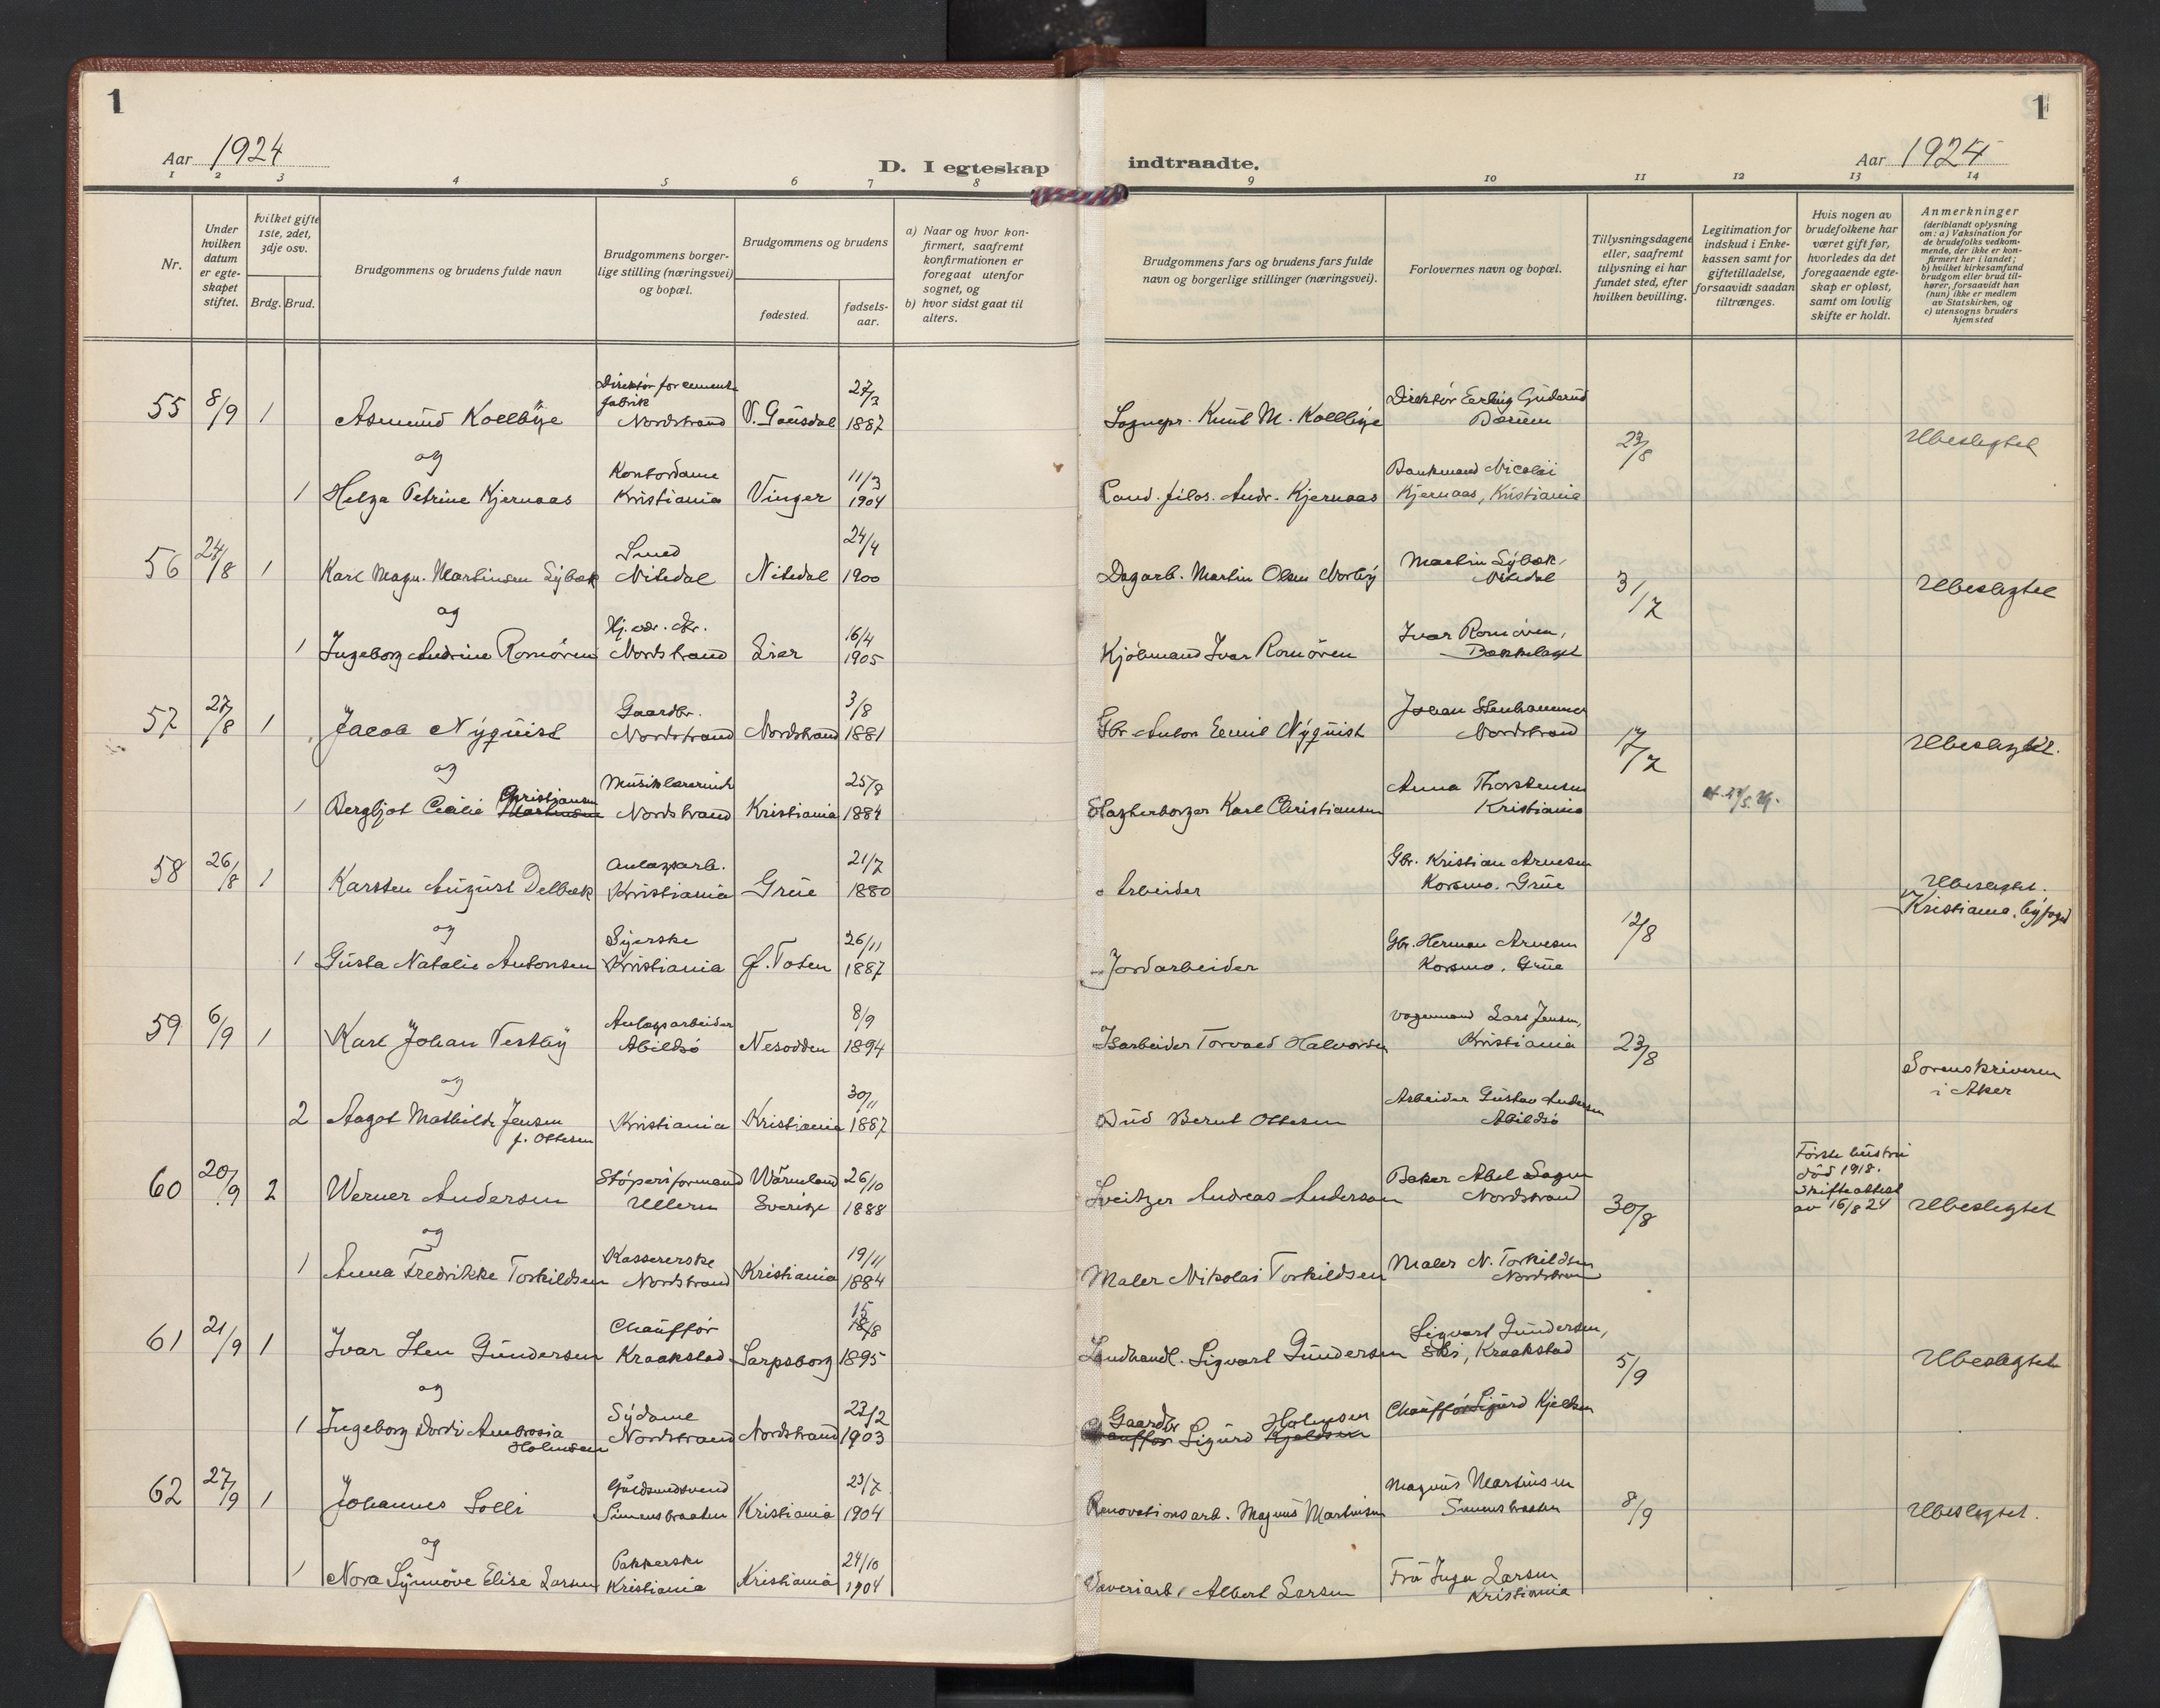 1
1
Aar 1924
D. I egteskap indtraadte.
Aar 1924
1 2 3 4 5 6 7 8 9 10 11 12 13 14
Nr.
Under hvilken datum er egteskapet stiftet.
Hvilket gifte 1ste, 2det, 3dje osv.
Brdg. Brud.
Brudgommens og brudens fulde navn
Brudgommens borgerlige stilling (næringsvei) og bopæl.
Brudgommens og brudens
fødested.
fødselsaar.
a) Naar og hvor konfirmert, saafremt konfirmationen er foregaat utenfor sognet, og
b) hvor sidst gaat til alters.
Brudgommens fars og brudens fars fulde navn og borgerlige stillinger (næringsvei).
Forlovernes navn og bopæl.
Tillysningsdagene eller, saafremt tillysning ei har fundet sted, efter hvilken bevilling.
Legitimation for indskud i Enkekassen samt for giftetilladelse, forsaavidt saadan tiltrænges.
Hvis nogen av brudefolkene har været gift før, hvorledes da det foregaaende egteskap er opløst, samt om lovlig skifte er holdt.
Anmerkninger (deriblandt oplysning om: a) Vaksination for de brudefolks vedkommende, der ikke er konfirmert her i landet; b) hvilket kirkesamfund brudgom eller brud tilhører, forsaavidt han (hun) ikke er medlem av Statskirken, og c) utensogns bruders hjemsted
55 8/9 1 Asmund Kollbye Direktør for cementfabrik Nordstrand V. Gausdal 27/3 1887 Sognepr. Knut M. Kollbye Direktør Erling Guderud Bærum 23/8 Ubeslegtet
og
1 Helga Petrine Kjernaas Kontordame Kristiania Vinger 11/3 1904 Cand. filos. Andr. Kjernaas Bankmand Nicolai Kjernaas, Kristiania
56 24/8 1 Karl Magn. Martinsen Sybæk Smed Nitedal Nitedal 24/4 1900 Dagarb. Martin Olsen Norby Martin Sybæk, Nitedal 31/7 Ubeslegtet
og
1 Ingeborg Andrine Romören Hj. vær. Nordstrand Lier 16/4 1905 Kjöbmand Ivar Romören Ivar Romören, Bækkelaget
57 27/8 1 Jacob Nyquist Gaardbr. Nordstrand Nordstrand 3/8 1881 Gbr. Anton Emil Nyquist Johan Stenhammer Nordstrand 17/7 Ubeslegtet.
og
1 Bergljot Cecilie Christiansen Musiklærerinde Nordstrand Kristiania 25/8 1884 Karl Christiansen Anna Thorstensen Kristiania
58 26/8 1 Karsten August Delbæk Anlægsarb. Kristiania Grue 21/7 1880 Arbeider Gbr. Kristian Arnesen Korsmo. Grue 12/8 Ubeslegtet. Kristiania byfoged
og
1 Gusta Natalie Antonsen Syerske Kristiania Ø. Toten 26/11 1887 Jordarbeider Gbr. Herman Arnesen Korsmo. Grue
59 6/9 1 Karl Johan Vestby Anlægsarbeider Abildsö Nesodden 8/9 1894 Isarbeider Torvald Halvorsen Vognmand Lars Jensen, Kristiania 23/8 Sorenskriveren i Aker
og
2 Aagot Mathilde Jensen f. Ottesen Kristiania Kristiania 30/11 1887 Bud Bernt Ottesen Arbeider Gustav Andersen Abildsö
60 20/9 2 Werner Andersen Støperiformand Ullern Wärmland Sverige 26/10 1888 Sveitzer Andreas Anderson Baker Abel Nordstrand 30/8 Første hustru död 1918. Skifteattest av 16/8 24 Ubeslegtet
og
1 Anna Fredrikke Torkildsen Kassererske Nordstrand Kristiania 19/11 1884 Maler Nikolai Torkildsen Maler N. Torkildsen Nordstrand
61 21/9 1 Ivar Sten Gundersen Chauffør Kraakstad Sarpsborg 15/8 1895 Landhandl. Sigvart Gundersen Sigvart Gundersen, Ski, Kraakstad 5/9 Ubeslegtet
og
1 Ingeborg Dordi Ambrosia Holmsen Sydame Nordstrand Nordstrand 23/2 1903 Gaardbr Sigurd Holmsen Chauffør Sigurd Kjelsen
62 27/9 1 Johannes Solli Guldsmedsvend Simensbraaten Kristiania 23/7 1904 Renovationsarb. Magnus Martinsen Magnus Martinsen Simensbraaten 8/9 Ubeslegtet.
og
1 Nora Synnöve Elise Larsen Pakkerske Kristiania Kristiania 24/10 1904 Væveriarb. Albert Larsen Fru Inga Larsen Kristiania